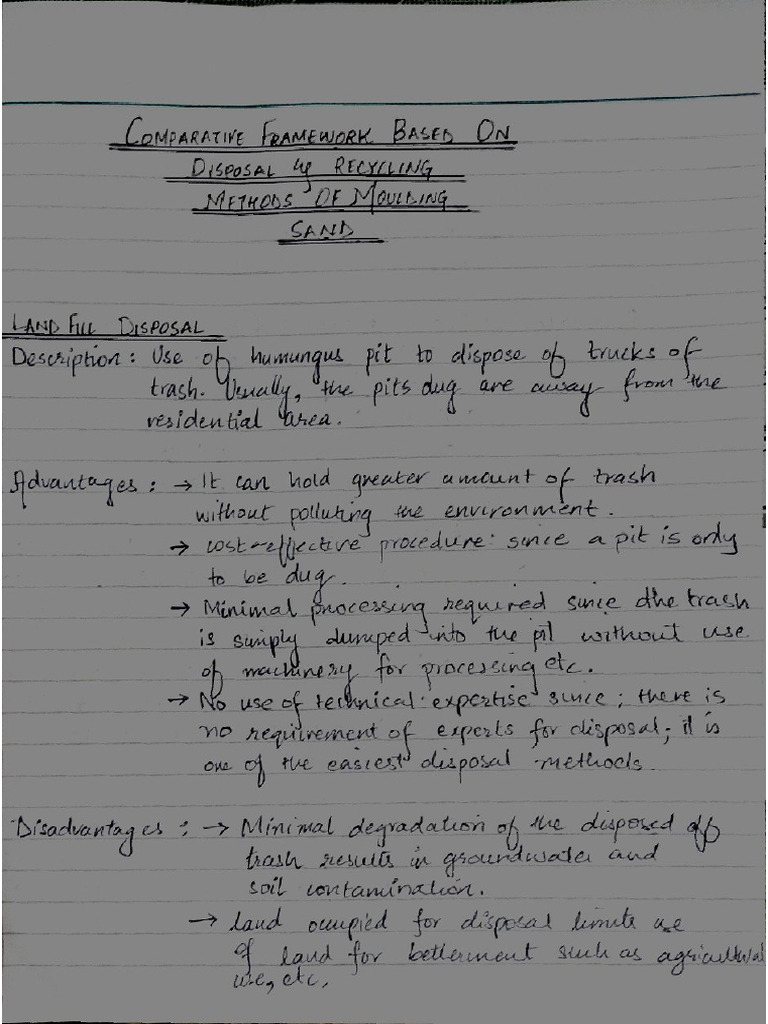 COMPARATIVE FRAMEWORK BASED ON
DISPOSAL & RECYCLING
METHODS OF MOULDING
SAND
LAND FILL DISPOSAL
Description: Use of humungus pit to dispose of trucks of
trash. Usually, the pits dug are away from the
residential area.
Advantages: → It can hold greater amount of trash
without polluting the environment.
→ cost-effective procedure: since a pit is only
to be dug.
→ Minimal processing required since dhe trash
is simply dumped into the pit without use
of machinery for processing etc.
→ No use of technical expertise since; there is
no requirement of experts for disposal; it is
one of the easiest disposal methods.
Disadvantages: → Minimal degradation of the disposed off
trash results in groundwater and
soil contamination.
→ Land occupied for disposal limits use
of land for betterment such as agricultural
use, etc.